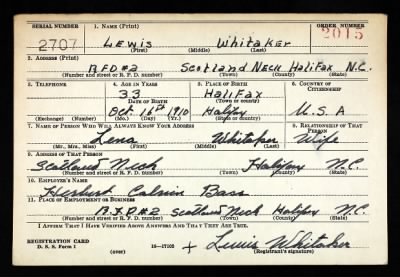 SERIAL NUMBER 1. NAME (Print) ORDER NUMBER
2707 LEWIS Whitaker 2015
(First) (Middle) (Last)
2. ADDRESS (Print)
RFD#2 Scotland Neck Halifax N.C.
(Number and street or R. F. D. number) (Town) (County) (State)
3. TELEPHONE 4. AGE IN YEARS 5. PLACE OF BIRTH 6. COUNTRY OF CITIZENSHIP
33 HaliFax
DATE OF BIRTH (Town or county)
Oct. 16th 1910 Halifax U.S.A
(Exchange) (Number) (Mo.) (Day) (Yr.) (State or country)
7. NAME OF PERSON WHO WILL ALWAYS KNOW YOUR ADDRESS 8. RELATIONSHIP OF THAT PERSON
Lena Whitaker Wife
(Mr., Mrs., Miss) (First) (Middle) (Last)
9. ADDRESS OF THAT PERSON
Scotland Neck Halifax N.C.
(Number and street or R. F. D. number) (Town) (County) (State)
10. EMPLOYER'S NAME
Herbert Calvin Bass
11. PLACE OF EMPLOYMENT OR BUSINESS
R.F.D#2 Scotland Neck Halifax N.C.
(Number and street or R. F. D. number) (Town) (County) (State)
I AFFIRM THAT I HAVE VERIFIED ABOVE ANSWERS AND THAT THEY ARE TRUE.
REGISTRATION CARD
D. S. S. Form 1 (over) 16—17105 + Lewis Whitaker
(Registrant's signature)